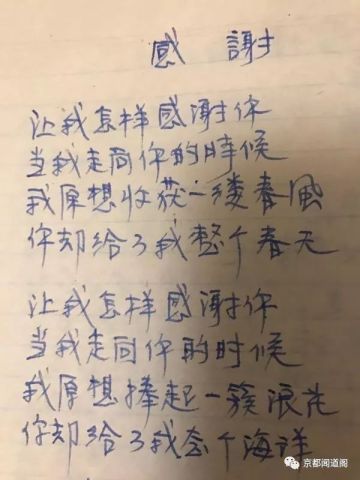 感 謝
让我怎样感谢你
当我走向你的時候
我原想收获一缕春風
你却给了我整个春天
让我怎样感谢你
当我走向你的时候
我原想捧起一簇浪花
你却给了我个海洋
京都闻道阁